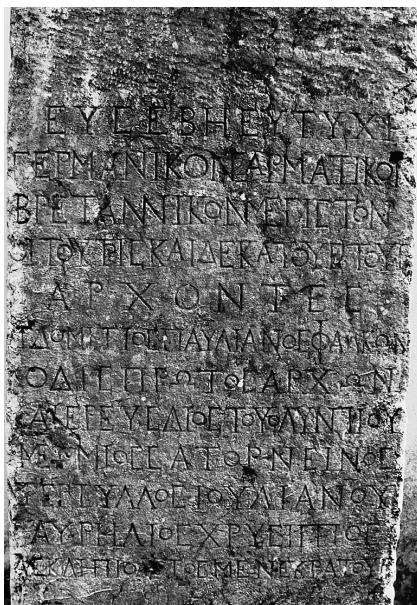 ΕΥΣΕΒΗΕΥΤΥΧΕ
ΓΕΡΜΑΝΙΚΟΝΣΑΡΜΑΤΙΚΟΝ
ΒΡΕΤΑΝΝΙΚΟΝΜΕΓΙΣΤΟΝ
ΟΙΤΟΥΤΡΙΣΚΑΙΔΕΚΑΤΟΥΕΤΟΥΣ
ΑΡΧΟΝΤΕΣ
ΤΔΟΜΙΤΤΟΣΠΑΥΛΙΑΝΟΣΦΑΛΚΩΝ
ΟΔΙΣΠΡΩΤΟΣΑΡΧΩΝ
ΚΑΙΕΡΕΥΣΔΙΟΣΤΟΥΟΛΥΝΠΙΟΥ
ΜΕΜΜΙΟΣΣΑΤΟΡΝΕΙΝΟΣ
ΤΕΡΤΥΛΛΟΣΙΟΥΛΙΑΝΟΥ
ΑΥΡΗΛΙΟΣΧΡΥΣΙΠΠΟΣ
ΑΣΚΛΗΠΙΟΔΟΤΟΣΜΕΝΕΚΡΑΤΟΥΣ